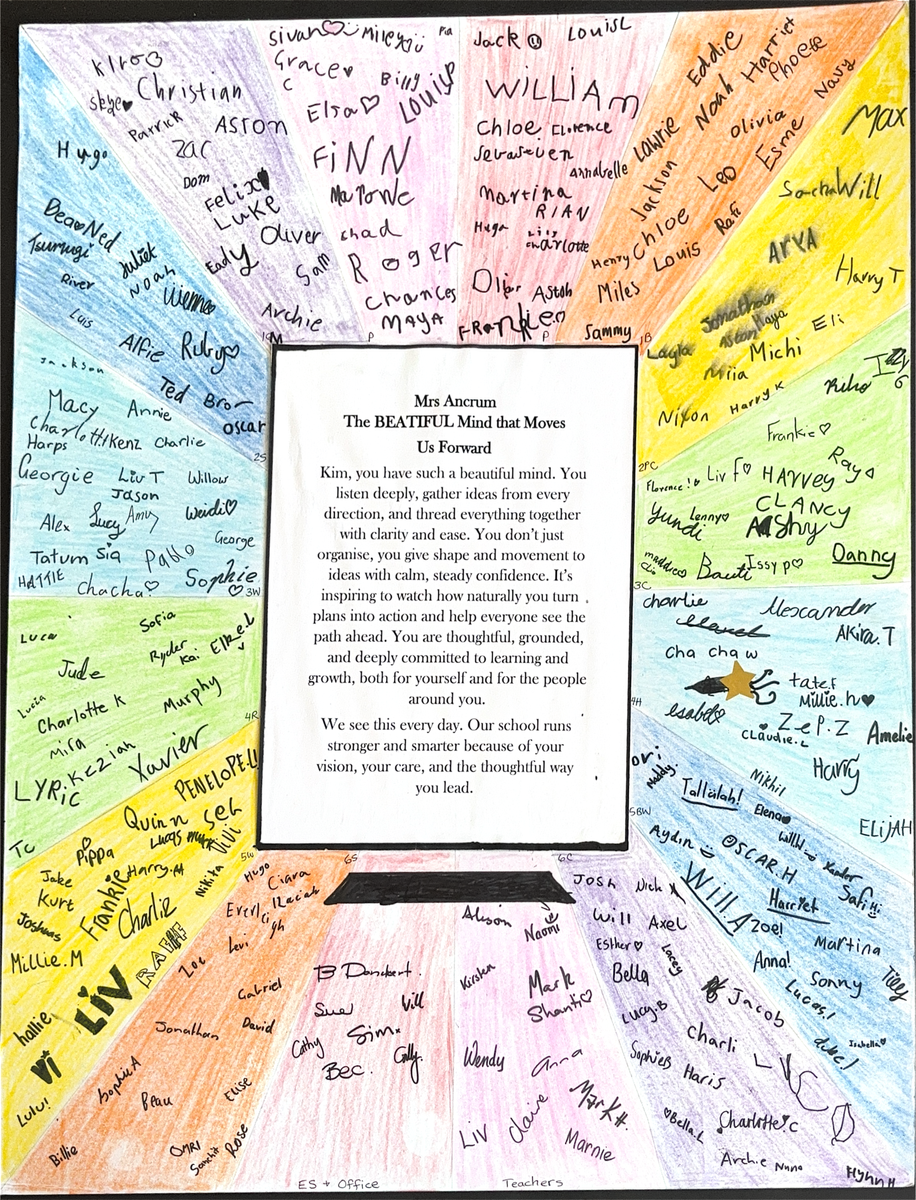 Kiro
Skye
Christian
Patrick
ASTON
Zac
DOM
Felix
LUKE
Oliver
Eady
Sam
Archie
sivan
Miley
Pia
Grace
C
Billy
Elsa
Louis
FiNN
chad
ROgER
Chances
MAYA
P
Jack
LouisL
WiLLIAm
Chloe
Florence
Annabelle
Martina
RIAN
Hugo
Lily
charlotte
Aston
Leo
P
Eddie
Harriet
Phoebe
Noah
Navy
Lawrie
Olivia
Esme
Jackson
Leo
Chloe
Rafi
Henry
Louis
Miles
Sammy
1B
Max
Will
ARYA
Harry T
Jonathan
Maya
Eli
Layla
Michi
Nixon
Harry K
2PC
Hugo
Ned
Tsumugi
Juliet
Noah
River
Luis
Alfie
Ruby
Ted
Oscar
2S
Jackson
Macy
Annie
Charlotte
Kenz
Charlie
Harps
Georgie
Liv T
Willow
Jason
Alex
Lucy
Amy
Weidi
George
Tatum
Sia
Pablo
HATTIE
Chacha
Sophie
3W
Izzy
G
Riho
Frankie
Raya
Florence!
Liv f
HARVEY
Yundi
Lenny
CLANCY
AShy
maddie
Clio
Bauti
Issy p
Danny
3C
Mrs Ancrum
The BEATIFUL Mind that Moves
Us Forward
Kim, you have such a beautiful mind. You
listen deeply, gather ideas from every
direction, and thread everything together
with clarity and ease. You don't just
organise, you give shape and movement to
ideas with calm, steady confidence. It's
inspiring to watch how naturally you turn
plans into action and help everyone see the
path ahead. You are thoughtful, grounded,
and deeply committed to learning and
growth, both for yourself and for the people
around you.
We see this every day. Our school runs
stronger and smarter because of your
vision, your care, and the thoughtful way
you lead.
Luca
Sofia
Ryder
Kai
Jude
Lucia
Charlotte K
Murphy
4R
Mira
Keziah
Xavier
LYRiC
Tc
charlie
Akira.T
cha cha w
tate.f
Millie.h
4H
Zep.Z
CLAUDiE.L
Amelie
Harry
ELiJAH
PENELOPE.LL
Quinn
Seb
Vivi
Pippa
Jake
Harry.M
Nikita
5W
Kurt
Frankie
Charlie
Joshuas
Millie.M
LiV
RAFF
hallie
Vi
Lulu!
Nikhil
Tallulah!
Elena
5BW
Aydin
OSCAR.H
Xander
Safi
Will.A
Harriet
Zoe!
Martina
Anna!
Sonny
Tilly
Lucas!
Luke!
Isabella
Hugo
Ciara
Everly
Levi
Zoe
Gabriel
Jonathan
David
Sophie A
Beau
Elise
OMRI
Rose
Billie
6S
Sue
Will
Cathy
Bec.
ES + Office
Alison
Naomi
Kirsten
Mark
Shanti
Wendy
Anna
Liv
Claire
Mark H
Marnie
Teachers
6C
JOSH
Nick
Will
Axel
Esther
Lacey
Bella
Lucy.B
Jacob
charli
SophieB
Haris
Bella.L
Charlotte.C
Archie
Flynn H